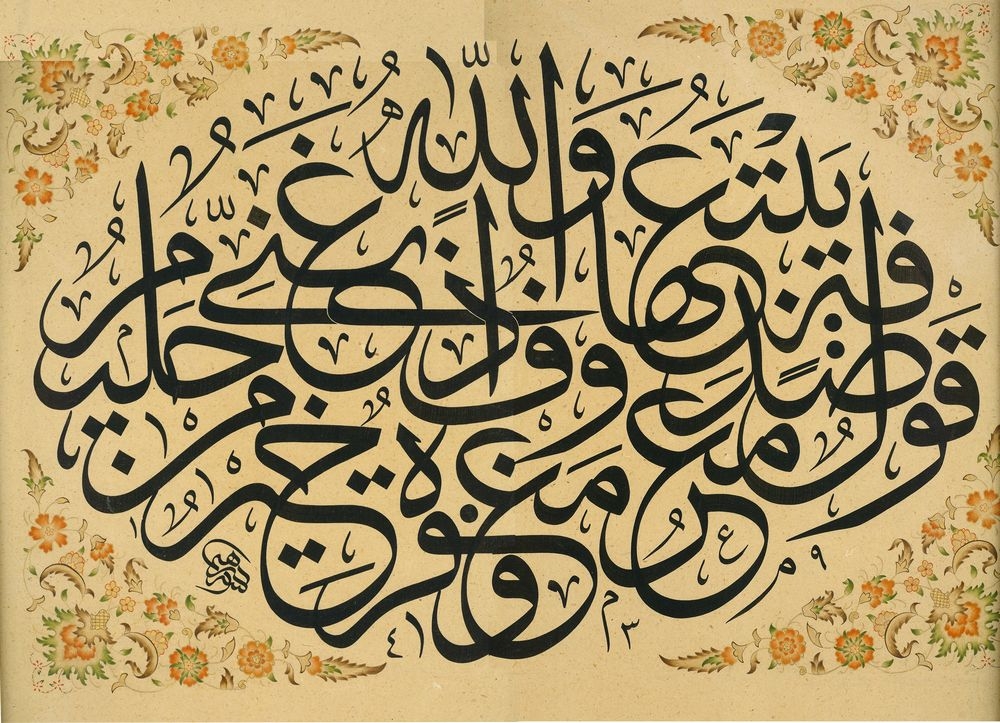 قول معروف ومغفرة خير من صدقة يتبعها أذى والله غني حليم